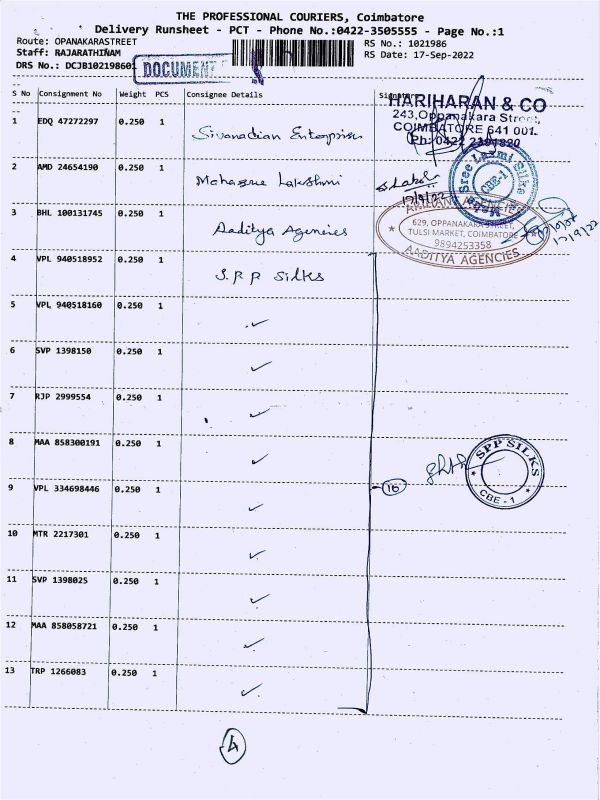 THE PROFESSIONAL COURIERS, Coimbatore
Delivery Runsheet - PCT - Phone No.:0422-3505555 - Page No.:1
Route: OPANAKARASTREET RS No.: 1021986
Staff: RAJARATHINAM RS Date: 17-Sep-2022
DRS No.: DCJB102198601 DOCUMENT
S No Consignment No Weight PCS Consignee Details
HARIHARAN & CO
243,Oppanakara Street,
COIMBATORE 641 001.
Ph: 0422 2391820
1 EDQ 47272297 0.250 1 Sivanadian Enterprises
2 AMD 24654190 0.250 1 Lakshmi
17/9/22
Sree Laxmi Silks
CBE-1
3 BHL 100131745 0.250 1 Aaditya Agencies
629, OPPANAKARA STREET,
TULSI MARKET, COIMBATORE
9894253358
AADITYA AGENCIES
17/9/22
4 VPL 940518952 0.250 1 S.P.P Silks
5 VPL 940518160 0.250 1 ✓
6 SVP 1398150 0.250 1 ✓
7 RJP 2999554 0.250 1 ✓
8 MAA 858300191 0.250 1 ✓
SPP SILKS
CBE - 1
9 VPL 334698446 0.250 1 ✓ 16
10 MTR 2217301 0.250 1 ✓
11 SVP 1398025 0.250 1 ✓
12 MAA 858058721 0.250 1 ✓
13 TRP 1266083 0.250 1 ✓
4